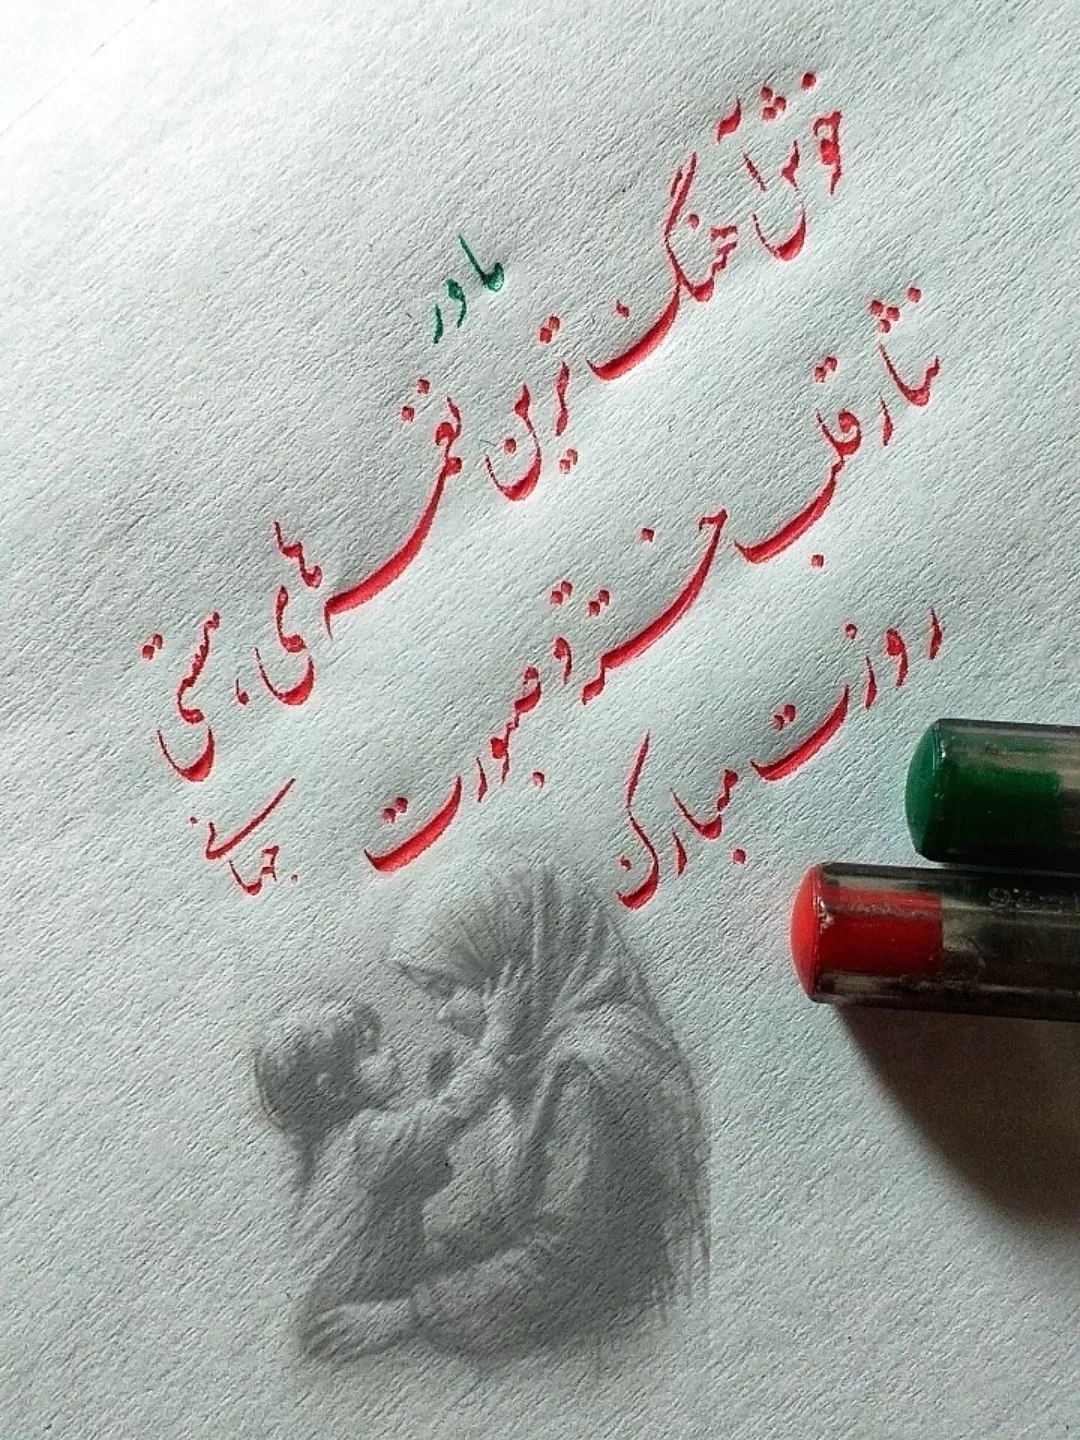 مادر
خوش آهنگ ترین نغمه های هستی
نثار قلب خسته و صبورت
روزت مبارک